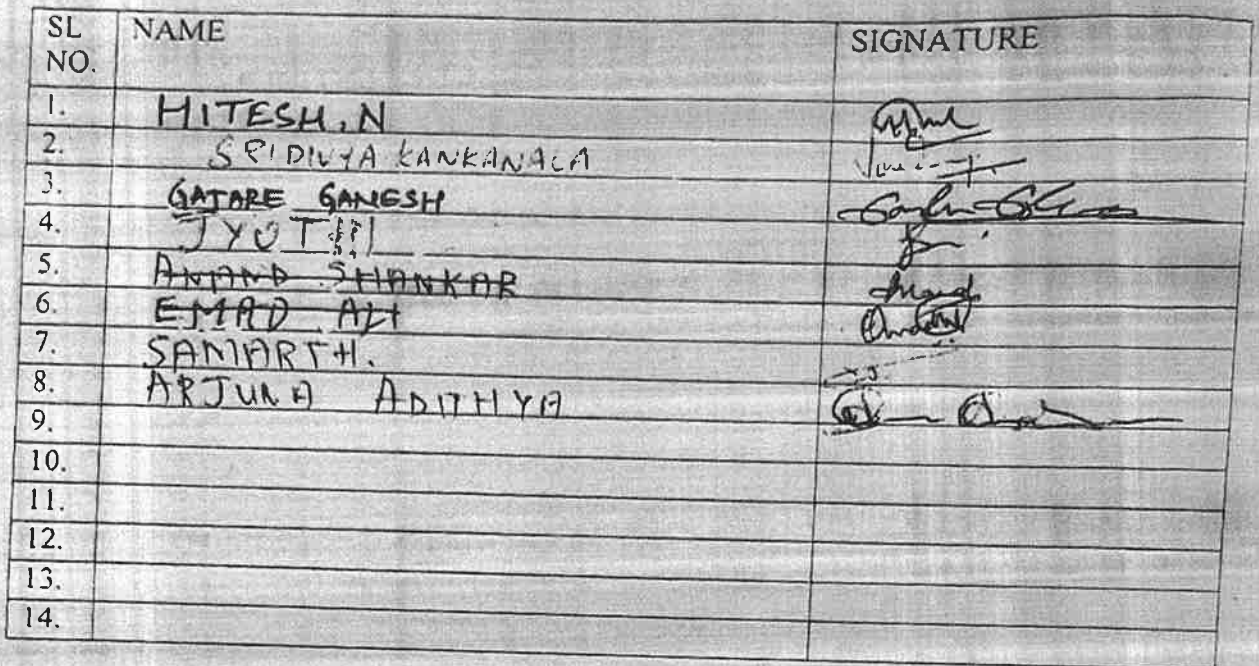 SL NO. NAME SIGNATURE
1. HITESH. N
2. SRIDIVYA KANKANALA
3. GATARE GANESH
4. JYOTI
5. ANAND SHANKAR
6. EMAD ALI
7. SAMARTH.
8. ARJUNA ADITHYA
9.
10.
11.
12.
13.
14.